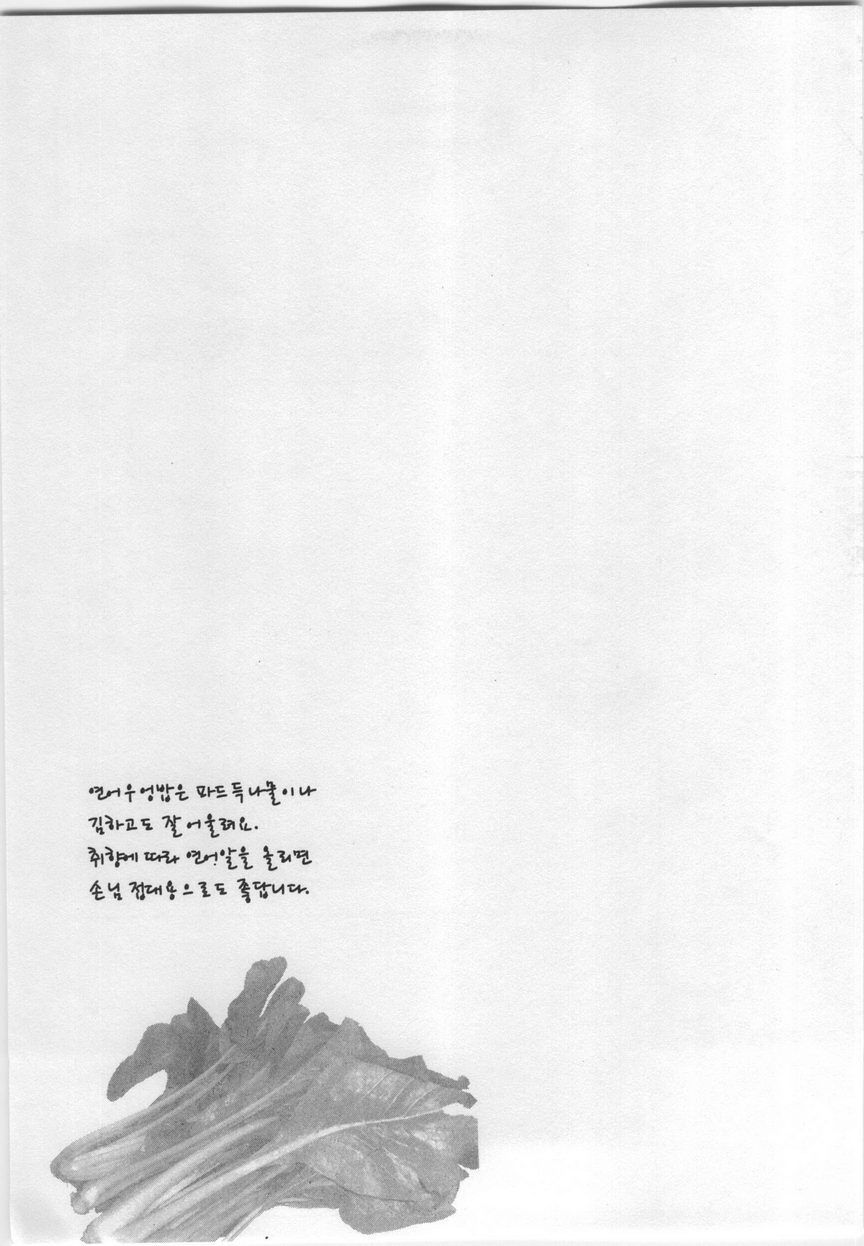 연어우엉밥은 파드득나물이나
김하고도 잘 어울려요.
취향에 따라 연어알을 올리면
손님 접대용으로도 좋답니다.